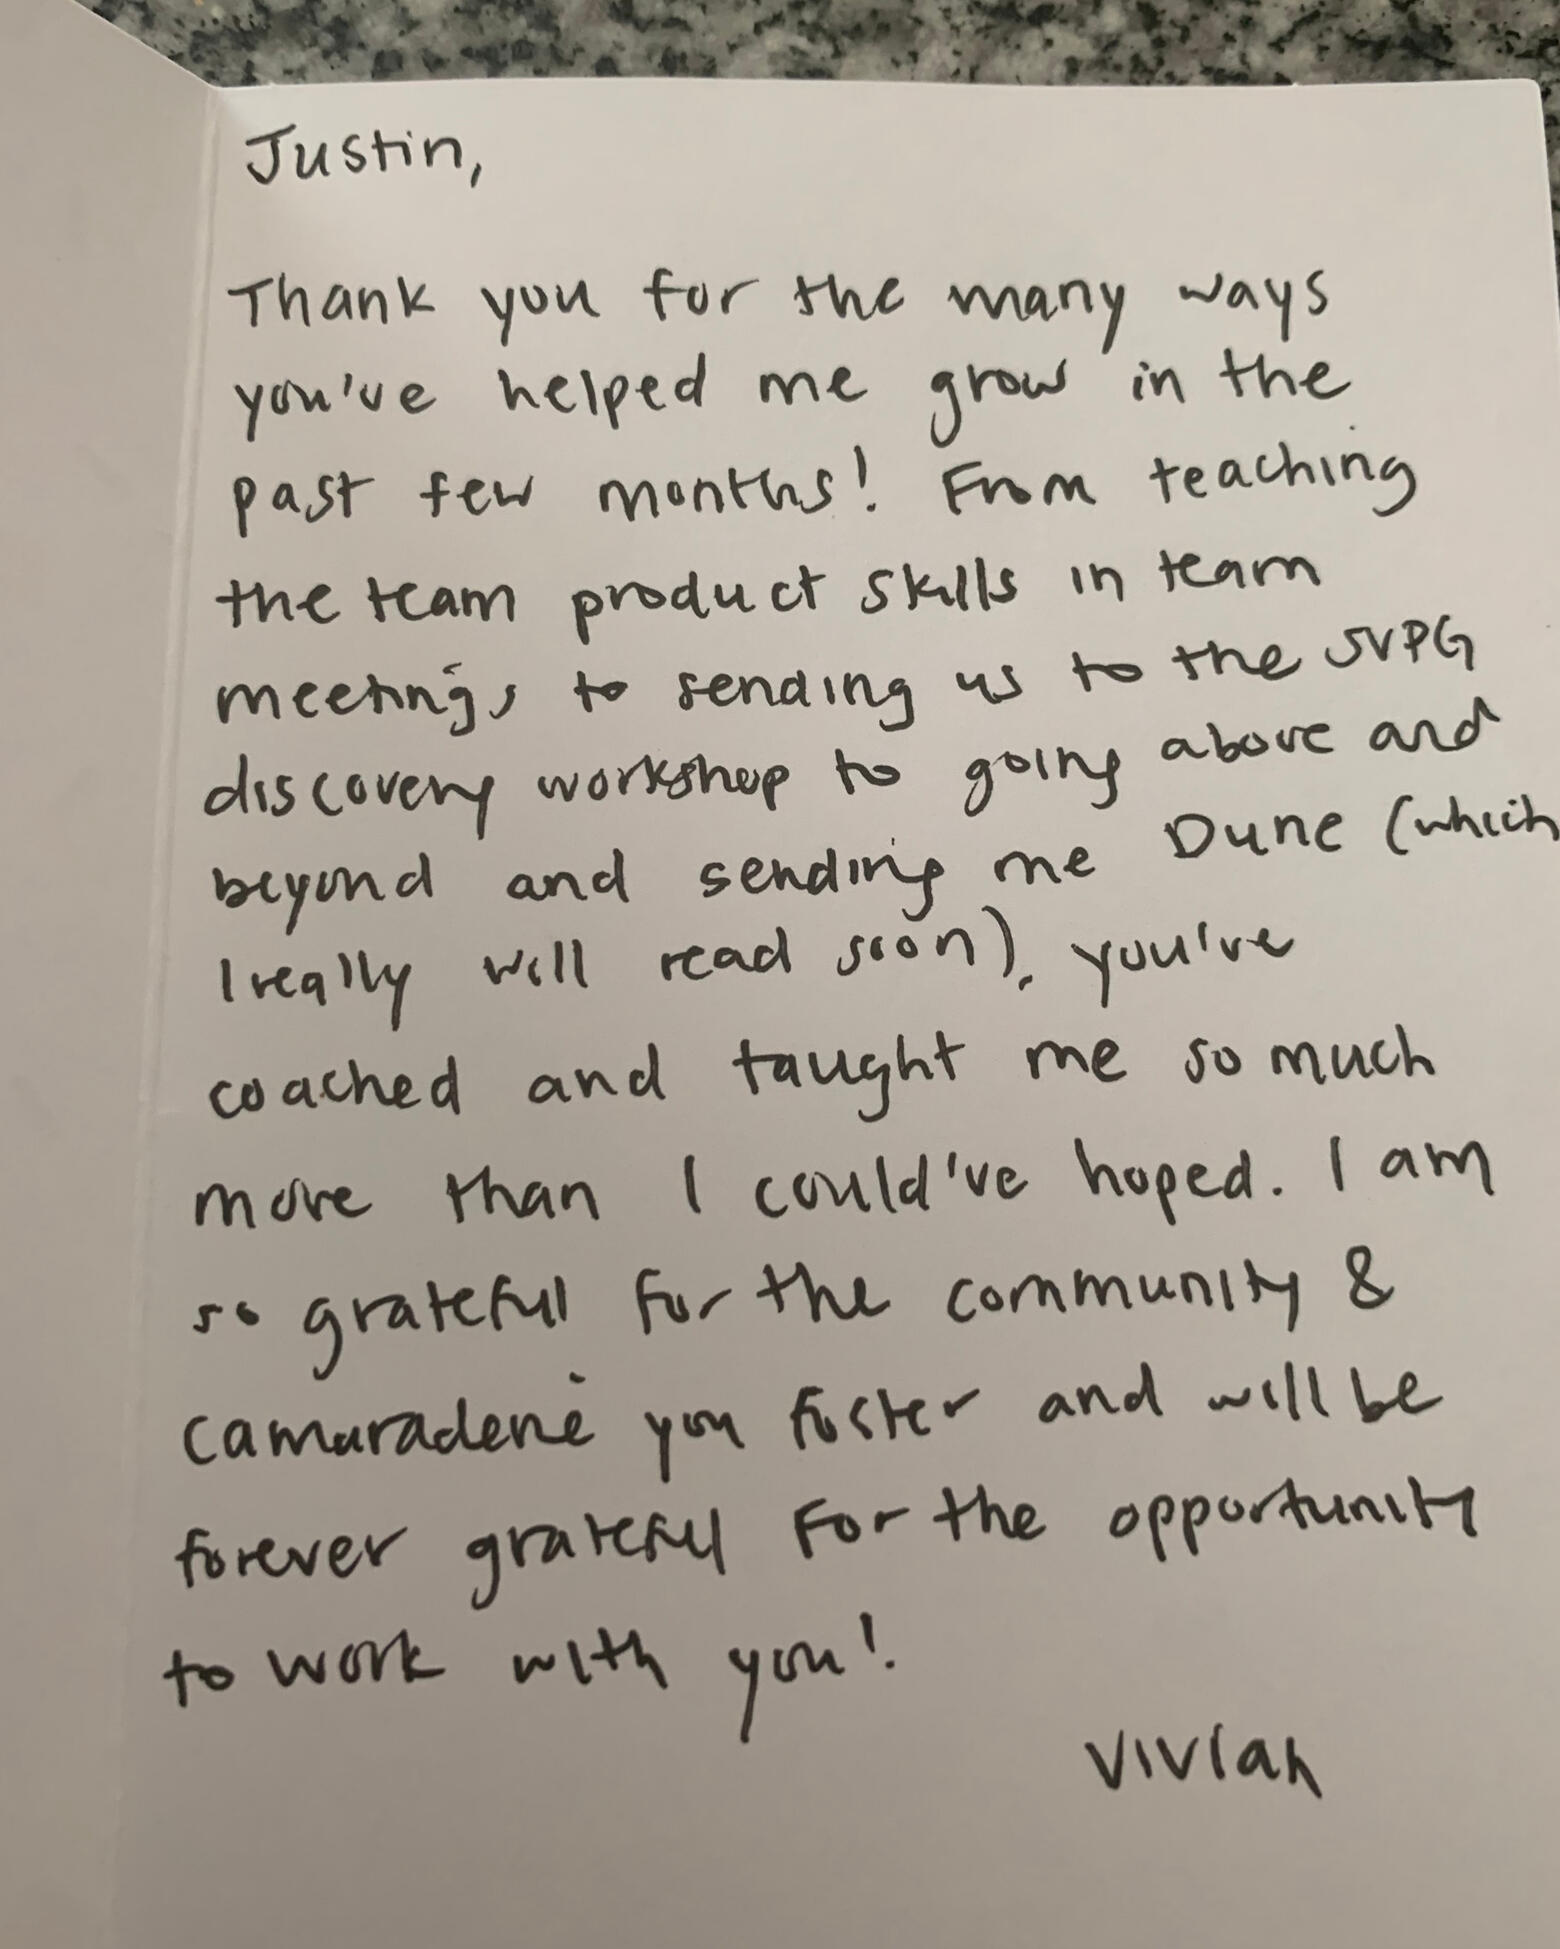 Justin,
Thank you for the many ways
you've helped me grow in the
past few months! From teaching
the team product skills in team
meetings to sending us to the SVPG
discovery workshop to going above and
beyond and sending me Dune (which
I really will read soon), you've
coached and taught me so much
more than I could've hoped. I am
so grateful for the community &
camaraderie you foster and will be
forever grateful for the opportunity
to work with you!
Vivian